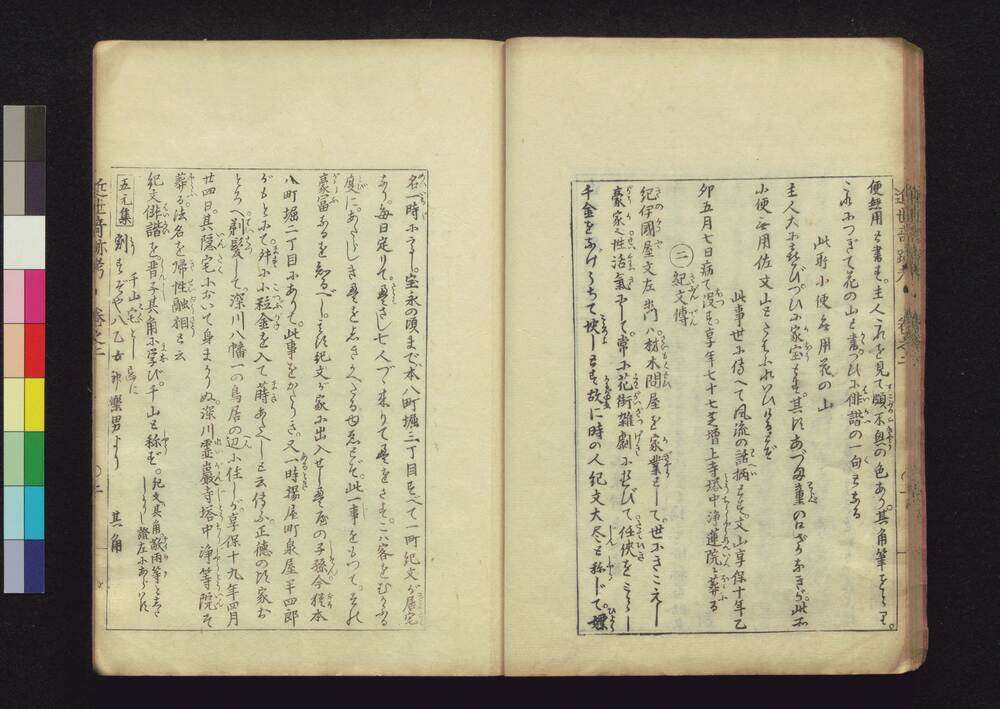 便無用と書す。主人これを見て頗不興の色あり。其角筆をとりて。
これにつぎて花の山と書つひに俳諧の一句となる
此所小便無用花の山
主人大に喜びつひに家宝とす。其
小便無用佐文山と
此事世に傳へて風流の話柄とす。文山享保十年乙
卯五月七日病て没す。享年七十七芝増上寺塔中浄蓮院に葬る
二 紀文傳
紀伊國屋文左衛門ハ材木問屋を家業として。世にきこえし
豪家也。性活氣にして。常に花街雑劇に遊びて任侠をこととし
千金をなげうちて快しとす故に時の人紀文大尽と称じて。
名一時に高し。宝永の頃まで本八町堀三丁目すべて一町紀文が居宅
なり。毎日定りて畳さし七人づゝ来りて畳をさす。こハ客をむかふる
度に。あたらしき畳をしきかへたるゆゑとぞ。此一事をもつて。その
豪富なるを知るべし。其頃紀文が家に出入せし畳屋の子孫今猶本
八町堀二丁目にありて。此事をかたりき。又一時揚屋町泉屋平四郎
がもとにて。舛に小粒金を入て蒔あたへしと云傳ふ。正徳の頃家お
とろへ剃髪して。深川八幡一の鳥居の辺に住しが。享保十九年四月
廿四日。其隠宅において身まかりぬ。深川霊巌寺塔中浄等院に
葬る。法名を帰性融相と云
紀文俳諧を。晋子其角に学び。千山と称ず。
五元集 千山宅
八乙女神樂男より 其角
近世奇跡考 巻之二